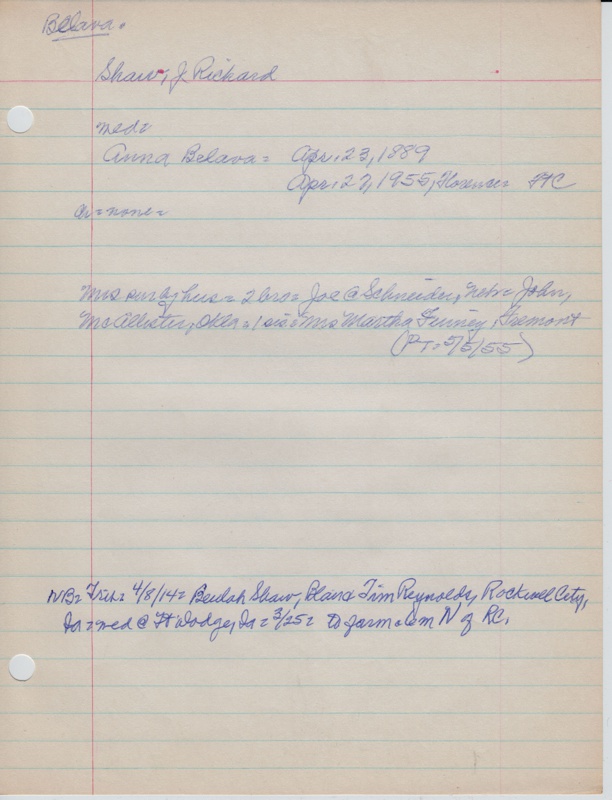 Belava.
Shaw, J. Richard
med=
Anna Belava= Apr. 23, 1889
Apr. 27, 1955, Florence=
Ch=none=
Mrs sur by hus= 2 bro= Joe @ Schneider, Neb= John,
McAllister, Okla= 1 sis= Mrs Martha Finney, Fremont
(PT= 5/5/55)
NB= Trib= 4/8/14= Beulah Shaw, & Tim Reynolds, Rockwell City,
Ia= med @ Ft Dodge, Ia= 3/25= to farm N of RC.